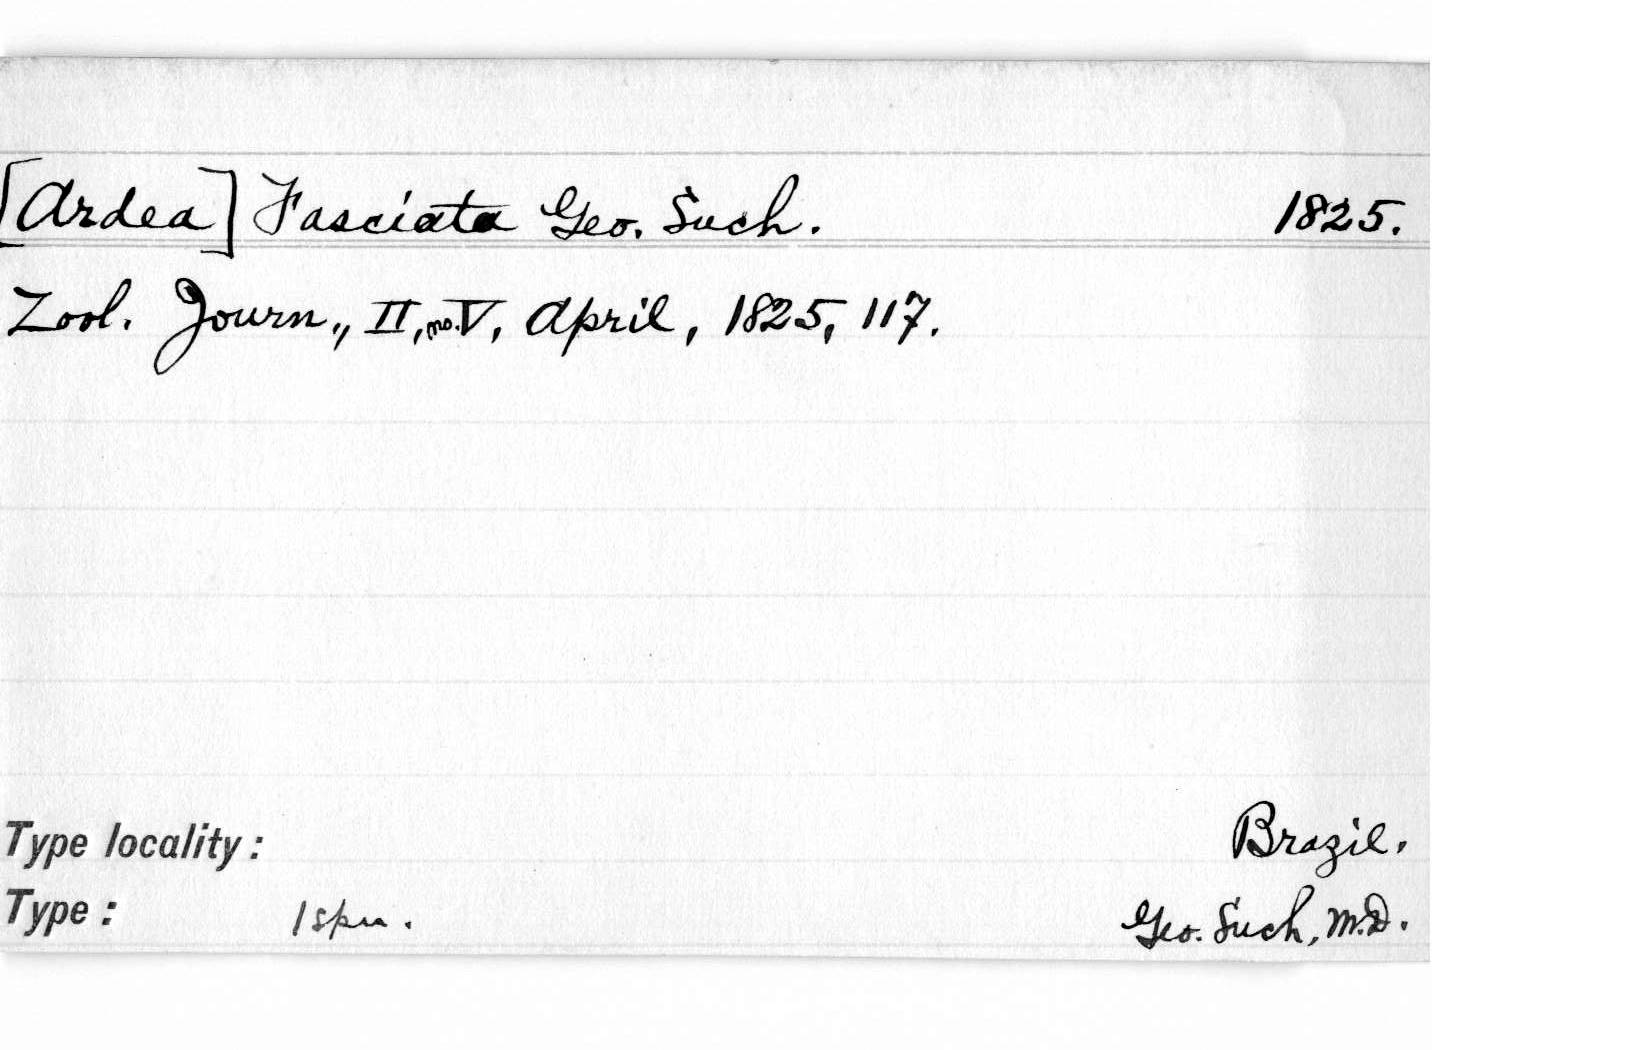 [Ardea] Fasciata Geo. Such. 1825.
Zool. Journ., II, no. V, April, 1825, 117.
Type locality: Brazil.
Type: 1 spm. Geo. Such, M.D.